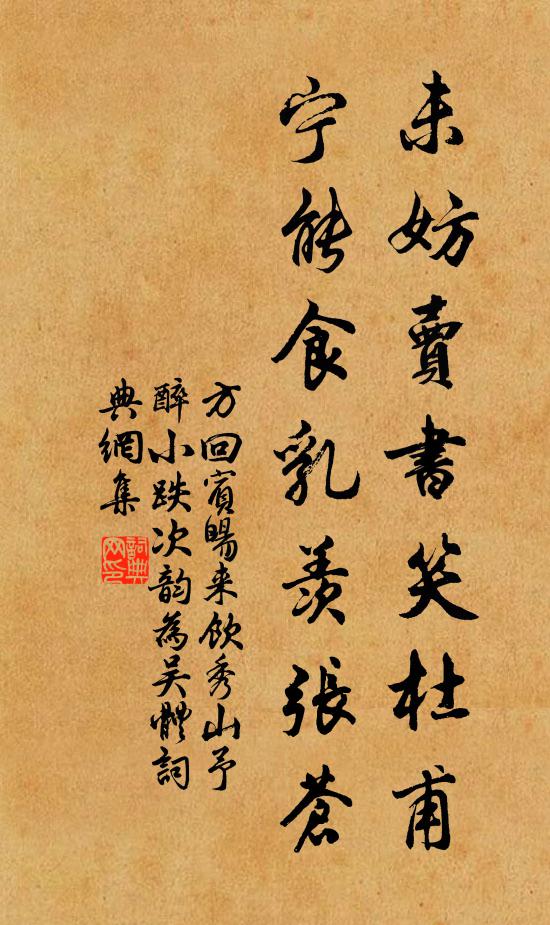 未妨賣書笑杜甫
宁能食乳羡張蒼
方回賓暘来飲秀山予
醉小跌次韵為吴體詞
典網集
詞典網印